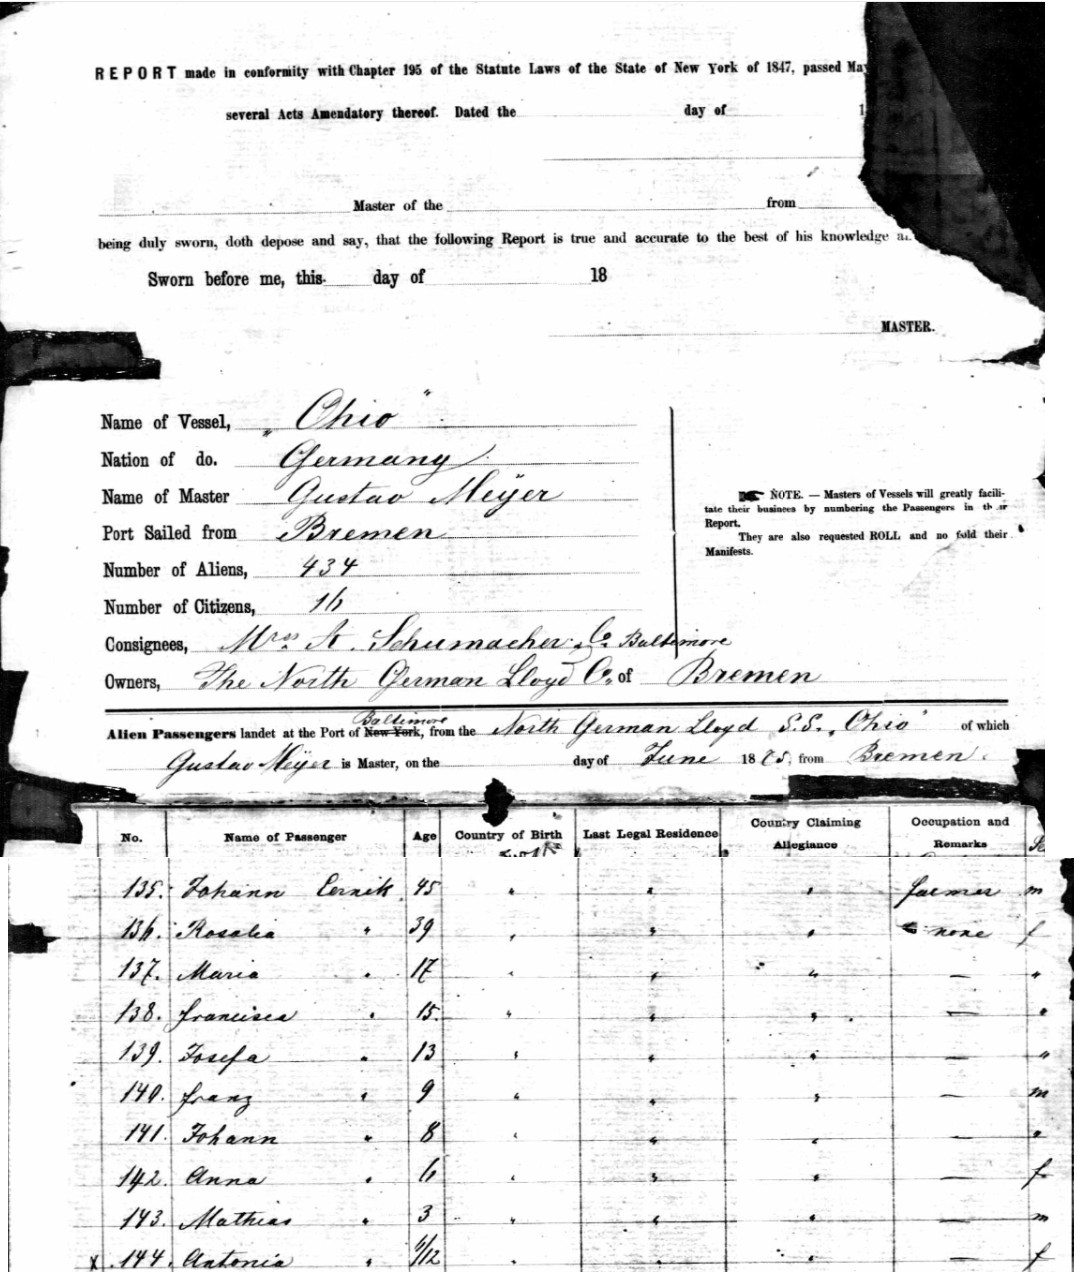 REPORT made in conformity with Chapter 195 of the Statute Laws of the State of New York of 1847, passed May
several Acts Amendatory thereof. Dated the day of 1
Master of the from
being duly sworn, doth depose and say, that the following Report is true and accurate to the best of his knowledge
Sworn before me, this day of 18
MASTER.
Name of Vessel, „Ohio"
Nation of do. Germany
Name of Master Gustav Meÿer
Port Sailed from Bremen
Number of Aliens, 434
Number of Citizens, 16
Consignees, A. Schumacher & Co. Baltimore
Owners, The North German Lloyd Co. of Bremen
NOTE. — Masters of Vessels will greatly facili-
tate their business by numbering the Passengers in their
Report.
They are also requested ROLL and no fold their
Manifests.
Baltimore
Alien Passengers landet at the Port of New York, from the North German Lloyd S.S. „Ohio" of which
Gustav Meÿer is Master, on the day of June 1875, from Bremen.
No. Name of Passenger Age Country of Birth Last Legal Residence Country Claiming Allegiance Occupation and Remarks
135. Johann Cernik 45 " " " farmer m
136. Rosalia " 39 " " " none f
137. Maria " 17 " " " — "
138. Francisca " 15. " " " — "
139. Josefa " 13 " " " — "
140. Franz " 9 " " " — m
141. Johann " 8 " " " — "
142. Anna " 6 " " " — f
143. Mathias " 3 " " " — m
x 144. Antonia " /12 " " " — f